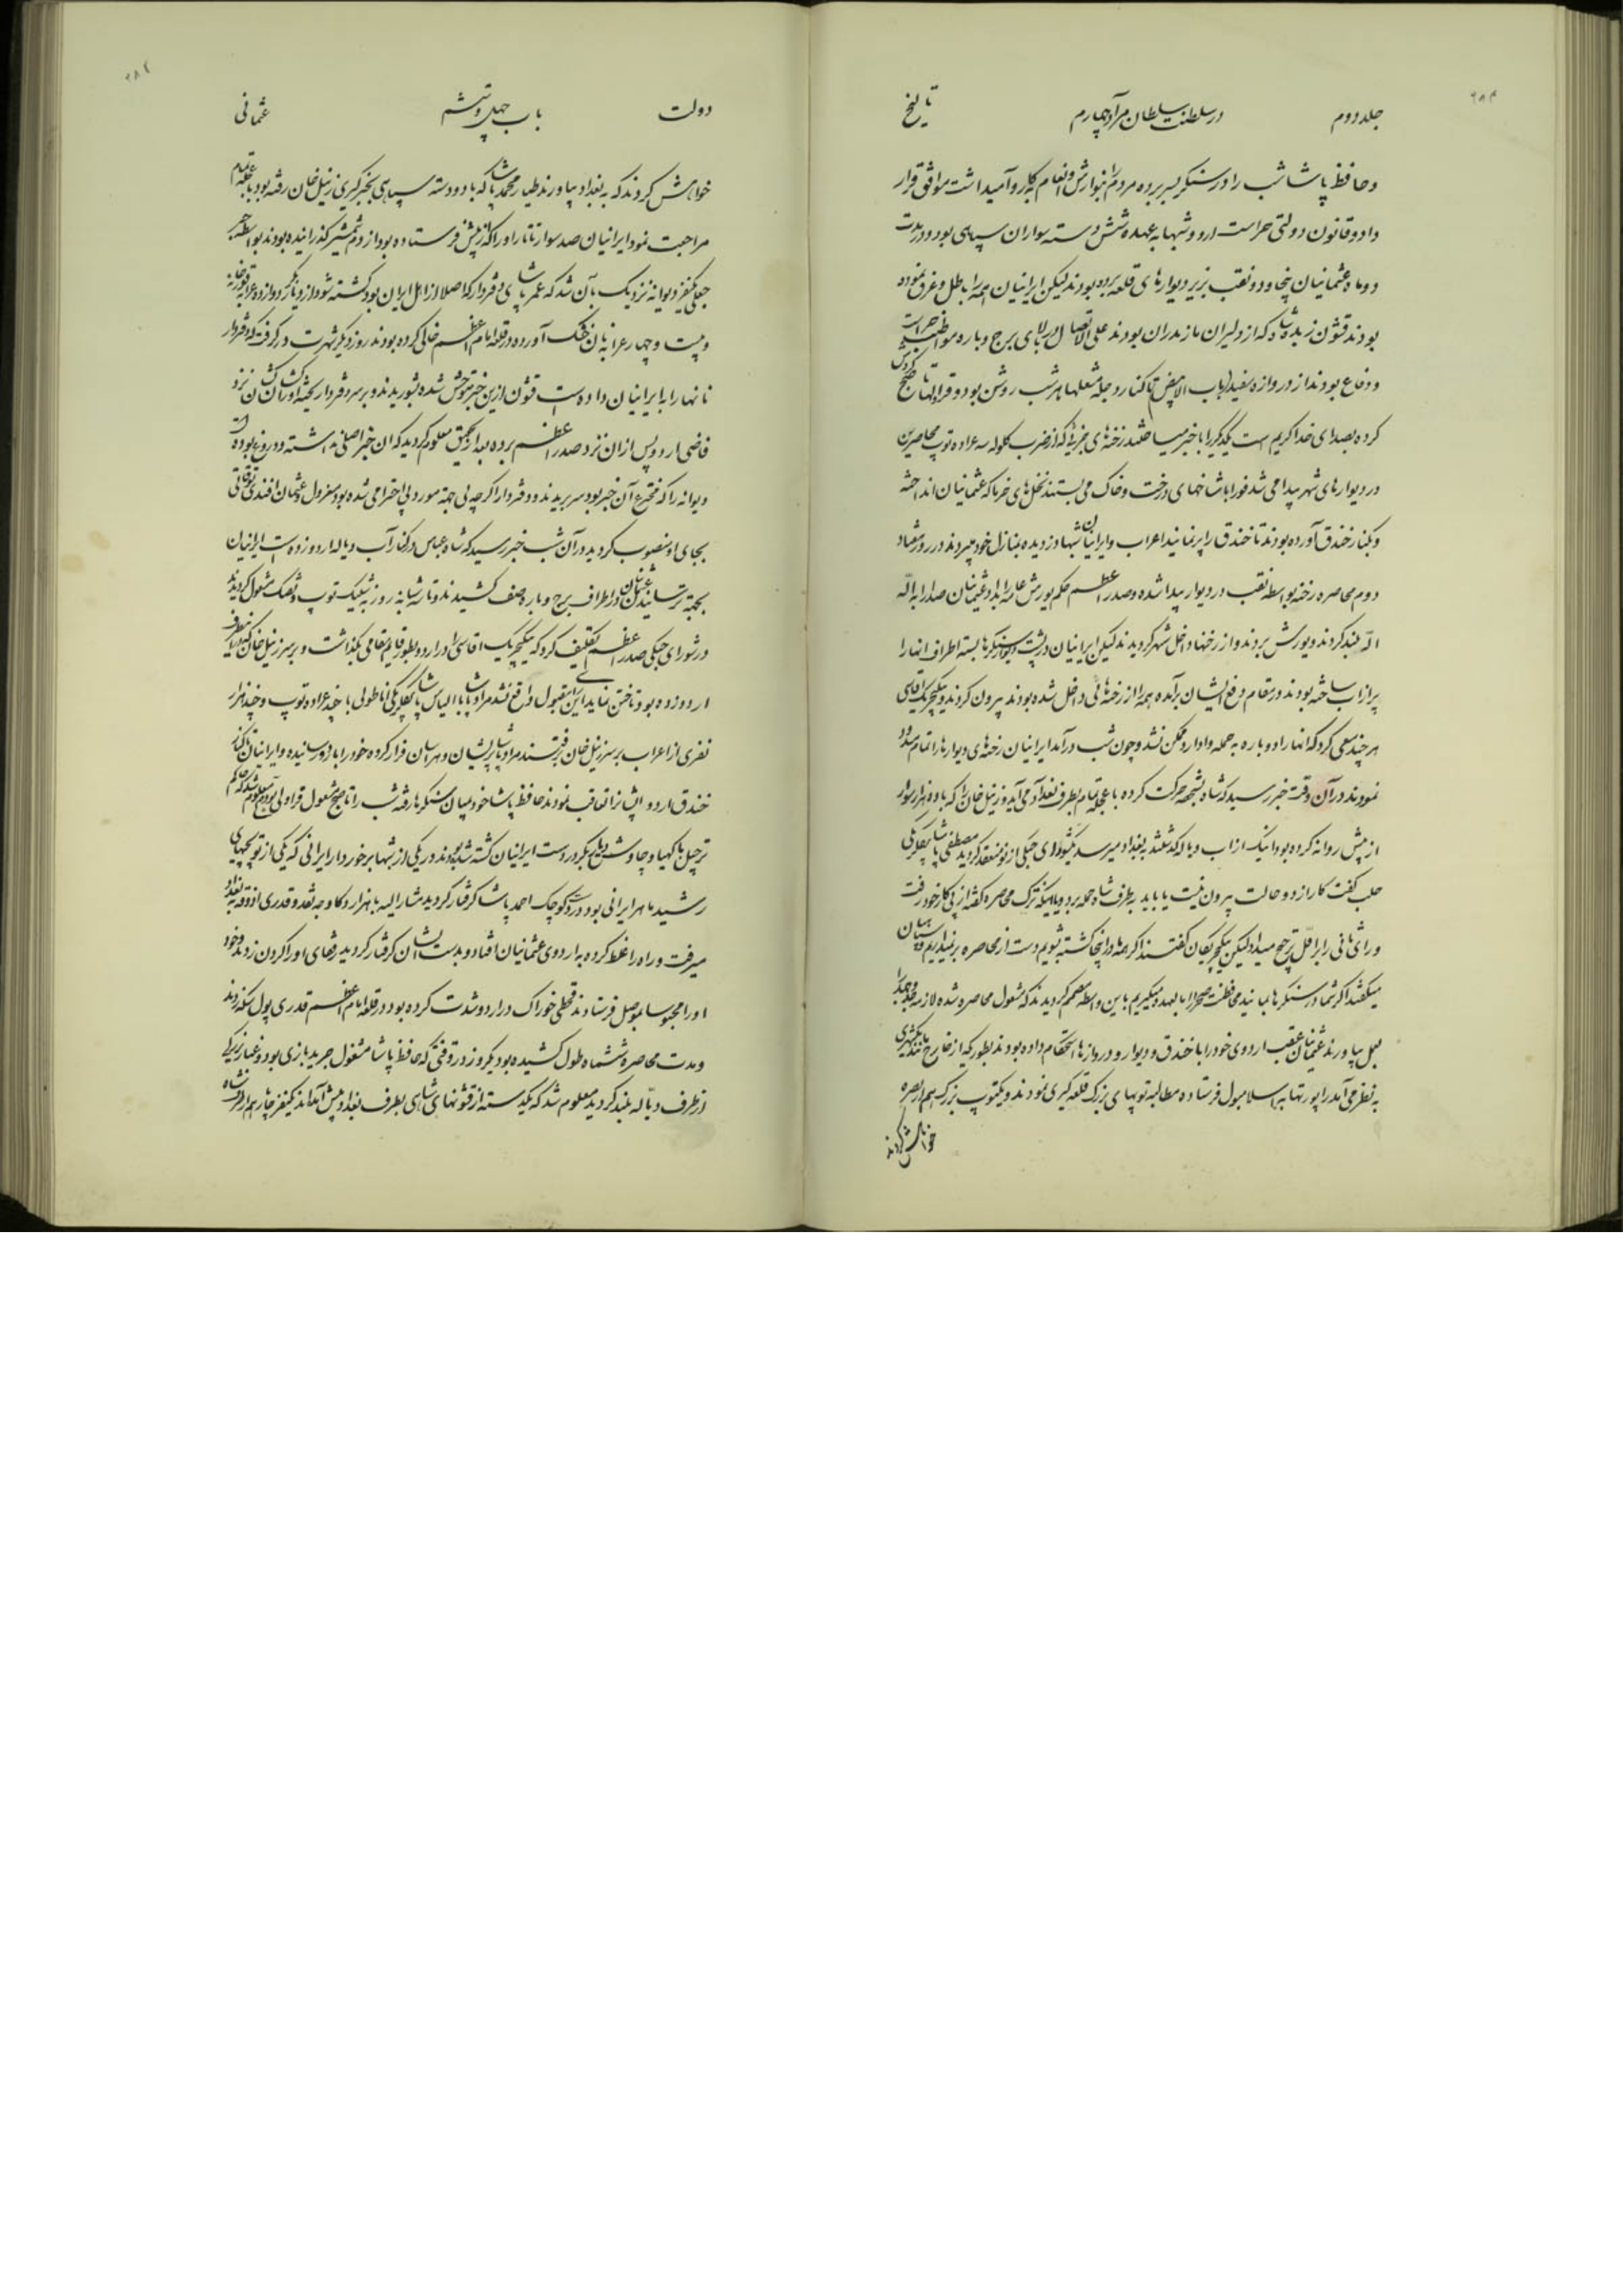 جلد دوم در سلطنت سلطان مراد چهارم تاریخ
و حافظ پاشا شب را در سنگر بسر برده مردم را بنوازش و انعام بکار وامیداشت موافق قرار
داد و قانون دولتی حراست اردو شبها به عهده شش دسته سواران سپاهی بود و در مدت
دو ماه عثمانیان پنجاه و دو نقب بزیر دیوارهای قلعه برده بودند لیکن ایرانیان همه را باطل و غرق نموده
بودند قشون زبده شاه که از دلیران مازندران بودند علی الاتصال در بالای برج و باره مواظب حراست
و دفاع بودند از دروازه سفید (باب الابیض) تا کنار دجله مشعلها هر شب روشن بود و قراولها تا صبح گردش
کرده بصدای خدا کریم است یکدیگر را با خبر میساختند رخنه های جزئی که از ضرب گلوله سه عراده توپ محاصرین
در دیوارهای شهر پیدا می شد فورا باشاخهای درخت و خاک می بستند نخل های خرما که عثمانیان انداخته
و بکنار خندق آورده بودند تا خندق را پر نمایند اعراب و ایرانیان شبها دزدیده بمنازل خود میبردند در روز هفتاد
دوم محاصره رخنه بواسطه نقب در دیوار پیدا شده و صدر اعظم حکم یورش عامه را داد و عثمانیان صدا را به الله
الله بلند کردند و یورش بردند و از رخنها داخل شهر گردیدند لیکن ایرانیان در پشت دیوار سنگرها بسته اطراف انها را
پر از اب ساخته بودند در مقام دفع ایشان برآمده همه را از رخنه هائی داخل شده بودند بیرون کردند و ینگیچریک اقاسی
هر چند سعی کرد که انها را دوباره به حمله وادارد ممکن نشد و چون شب درآمد ایرانیان رخنه های دیوارها را تمام مسدود
نمودند در آن وقت خبر رسید که شاه بشخصه حرکت کرده با عجله تمام بطرف بغداد می آید و زنیل خان را که با ده هزار سوار
از پیش روانه کرده بود اینک از اب دیاله گذشته به بغداد میرسد شورای جنگی از نو منعقد گردید مصطفی پاشا بیگلربیگی
حلب گفت کار از دو حالت بیرون نیست یا باید بطرف شاه حمله برد و یا اینکه ترک محاصره گفته از پی کار خود رفت
و رای ثانی را بر اول ترجیح میداد لیکن ینگیچریکان گفتند اگر همه در اینجا کشته شویم دست از محاصره برنمیداریم و سپاهیان
میگفتند اگر شما در سنگرها بمانید محافظت صحرا را ما بعهده میگیریم باین واسطه مصمم گردیدند که مشغول محاصره شده لازمه جد و جهد را
بعمل بیاورند عثمانیان عقب اردوی خود را با خندق و دیوار و دروازها استحکام داده بودند بطوریکه از خارج مانند شهری
به نظر می آمد راپورتها به اسلامبول فرستاده مطالبه توپهای بزرگ قلعه گیری نمودند و یکتوپ بزرگ هم از بصره
خواهش کردند
دولت باب چهل و ششم عثمانی
خواهش کردند که به بغداد بیاورند طیار محمد پاشا که با دو دسته سپاهی بخبرگیری زنیل خان رفته بود با عجله تمام
مراجعت نمود ایرانیان صد سوار تاتار او را که از پیش فرستاده بود از دم شمشیر گذرانیده بودند بواسطه خبر
جعلی یکنفر دیوانه نزدیک بآن شد که عمر پاشای دفتردار که اصلا از اهل ایران بود کشته شود
و بیست و چهار عرابه نان خشک آورده در قلعه امام اعظم خالی کرده بودند روز دیگر شهرت در گرفت که دفتردار
نانها را به ایرانیان داده است قشون ازین خبر متوحش شده بشوریدند و بر سر دفتردار ریخته او را کشان کشان نزد
قاضی اردو پس ازان نزد صدر اعظم برده بعد از تحقیق معلوم گردید که ان خبر اصلی نداشته و دروغ بوده
دیوانه را که مخترع آن خبر بود سر بریدند و دفتردار اگرچه بی جهة مورد بی احترامی شده بود معزول و عثمان افندی توقاتی
بجای او منصوب گردید در آن شب خبر رسید که شاه عباس در کنار آب دیاله اردو زده است ایرانیان
بجهة ترسانیدن عثمانیان در اطراف برج و باره صف کشیدند و تا سه شبانه روز به شلیک توپ و تفنگ مشغول گردیدند
در شورای جنگی صدر اعظم تکلیف کرد که ینگیچریک اقاسی را در اردو بطور قایم مقامی بگذاشت و بر سر زنیل خان
اردو زده بود تاختن نماید این رای مقبول واقع نشد مراد پاشا با الیاس پاشا بیگلربیگی اناطولی با چند عراده توپ و چند هزار
نفری از اعراب بر سر زنیل خان رفتند مراد پاشا پریشان و هراسان فرار کرده خود را به اردو رسانیده و ایرانیان تا کنار
خندق اردو ایشانرا تعاقب نمودند حافظ پاشا خود بمیان سنگرها رفته شب را تا صبح مشغول قراولی بود
رشید ماهر ایرانی بود در دست کوچک احمد پاشا گرفتار گردید مشار الیه با هزار راس گاو وجه نقد و قدری آذوقه به بغداد
میرفت و راه را غلط کرده به اردوی عثمانیان افتاد و بدست ایشان گرفتار گردید رفقای او را گردن زدند و خود
او را محبوسا بموصل فرستادند قحطی خوراک در اردو شدت کرده بود در قلعه امام اعظم قدری پول سکه زدند
و مدت محاصره ششماه طول کشیده بود یکروز در وقتی که حافظ پاشا مشغول جرید بازی بود غبار بزرگی
از طرف دیاله بلند گردید معلوم شد که یکدسته از قشونهای شاهی بطرف بغداد پیش آمده اند یکنفر چاپار هم از طرف شاه